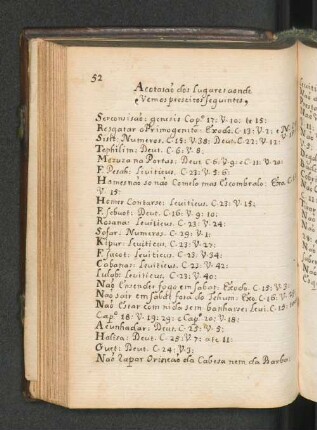 52
Acotasaõ dos Lugures aonde
Vemos preseitos seguintes
Serconsisaõ: genesis Cap.º 17: V. 10: te 15:
Resgatar o Primogenito: Exodo. C. 13: V. 2:
Sisit. Numeros. C. 15: V. 38: Deut. C. 22: V. 12:
Tephilim: Deut. C. 6: V. 8:
Mezuza na Portas: Deut. C. 6. V. 9: e C. 11. V. 20:
F. Pesah: Leviticus. C. 23: V. 5: 6:
Hames naõ so naõ Comelo mas Escombralo: Exo. C.
V. 15:
Homer Contarse: Leviticus. C. 23: V. 15:
F. Sebuot: Deut. C. 16: V. 9: 10:
Rosana: Leviticus. C. 23: V. 24:
Sofar: Numeros. C. 29: V. 1:
Kipur: Leviticus. C. 23: V. 27:
F. Sucot: Leviticus. C. 23: V. 34:
Cabanas: Leviticus. C. 23: V. 42:
Lulab: Leviticus. C. 23: V. 40:
Naõ Casender fogo em Sabat: Exodo. C. 35: V. 3:
Naõ sair em Sabat fora do Tehum: Exo. C. 16: V. 29
Naõ Estar com nida sem banharse: Levi. C. 15:
Cap.º 18: V. 19: 29: e Cap.º 20: V. 18:
Acunhadar: Deut. C. 25: V. 5:
Halisa: Deut. C. 25: V. 7: ate 11:
Guet: Deut. C. 24: V. 1:
Naõ Rapar O rincaõ da Cabesa nem da Barba: